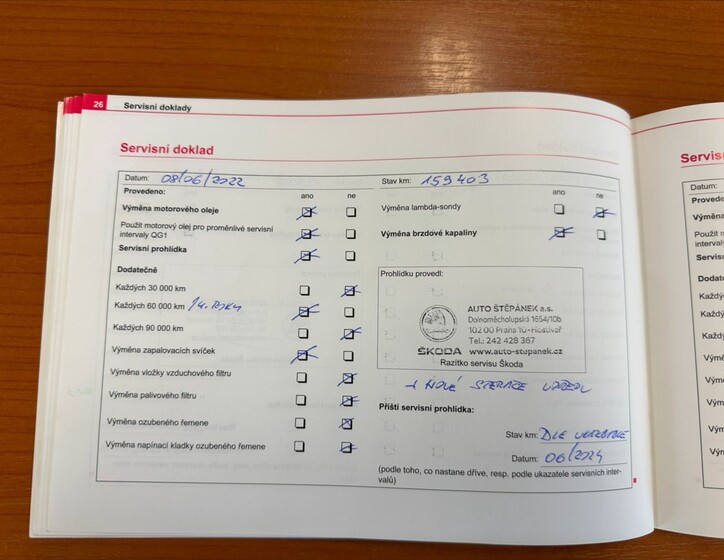 26 Servisní doklady
Servisní doklad
Datum: 08/06/2022
Provedeno: ano ne
Výměna motorového oleje
Použit motorový olej pro proměnlivé servisní
intervaly QG1
Servisní prohlídka
Dodatečně
Každých 30 000 km
Každých 60 000 km /4. ROKY
Každých 90 000 km
Výměna zapalovacích svíček
Výměna vložky vzduchového filtru
Výměna palivového filtru
Výměna ozubeného řemene
Výměna napínací kladky ozubeného řemene
Stav km: 159403
ano ne
Výměna lambda-sondy
Výměna brzdové kapaliny
Prohlídku provedl:
AUTO ŠTĚPÁNEK a.s.
Dolnoměcholupská 1654/10b
102 00 Praha 10-Hostivař
Tel.: 242 428 367
ŠKODA www.auto-stepanek.cz
Razítko servisu Škoda
+ NOVÉ STĚRAČE VPŘEDU
Příští servisní prohlídka:
Stav km: DLE UKAZATELE
Datum: 06/2024
(podle toho, co nastane dříve, resp. podle ukazatele servisních inter-
valů)
Servis
Datum:
Provede
Výměna
Použit m
intervaly
Servis
Dodat
Každý
Každý
Každ
Výmě
Výmě
Výmě
Výmě
Výn